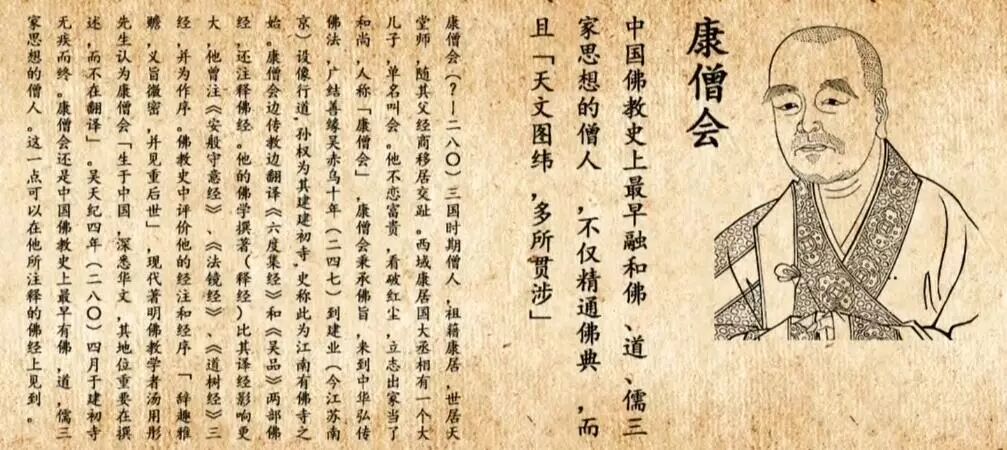 康僧会
中国佛教史上最早融和佛、道、儒三
家思想的僧人,不仅精通佛典,而
且「天文图纬,多所贯涉」
康僧会(?—二八〇)三国时期僧人,祖籍康居,世居天
堂师,随其父经商移居交趾。西域康居国大丞相有一个大
儿子,单名叫会。他不恋富贵,看破红尘,立志出家当了
和尚,人称「康僧会」,康僧会秉承佛旨,来到中华弘传
佛法,广结善缘吴赤乌十年(二四七)到建业(今江苏南
京)设像行道.孙权为其建建初寺.史称此为江南有佛寺之
始。康僧会边传教边翻译《六度集经》和《吴品》两部佛
经,还注释佛经。他的佛学撰著(释经)比其译经影响更
大,他曾注《安般守意经》、《法镜经》、《道树经》三
经,并为作序。佛教史中评价他的经注和经序「辞趣雅
赡,义旨微密,并见重后世」,现代著明佛教学者汤用彤
先生认为康僧会「生于中国,深悉华文,其地位重要在撰
述,而不在翻译」。吴天纪四年(二八〇)四月于建初寺
无疾而终。康僧会还是中国佛教史上最早有佛,道,儒三
家思想的僧人。这一点可以在他所注释的佛经上见到。